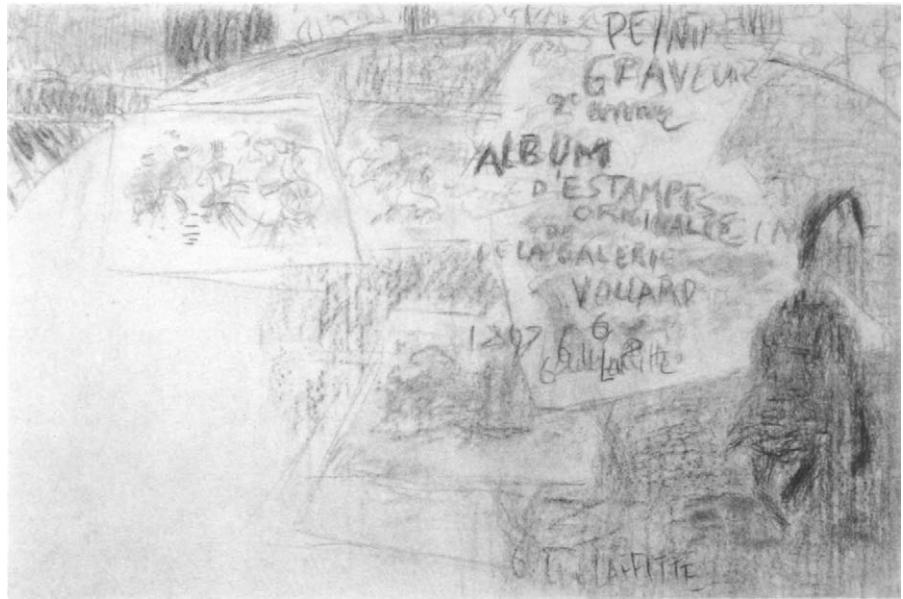 PEINTR
GRAVEUR
2e année
ALBUM
D'ESTAMPES
ORIGINALES
DE
DE LA GALERIE
VOLLARD
1897 6
LAFFITTE
6 LAFFITTE